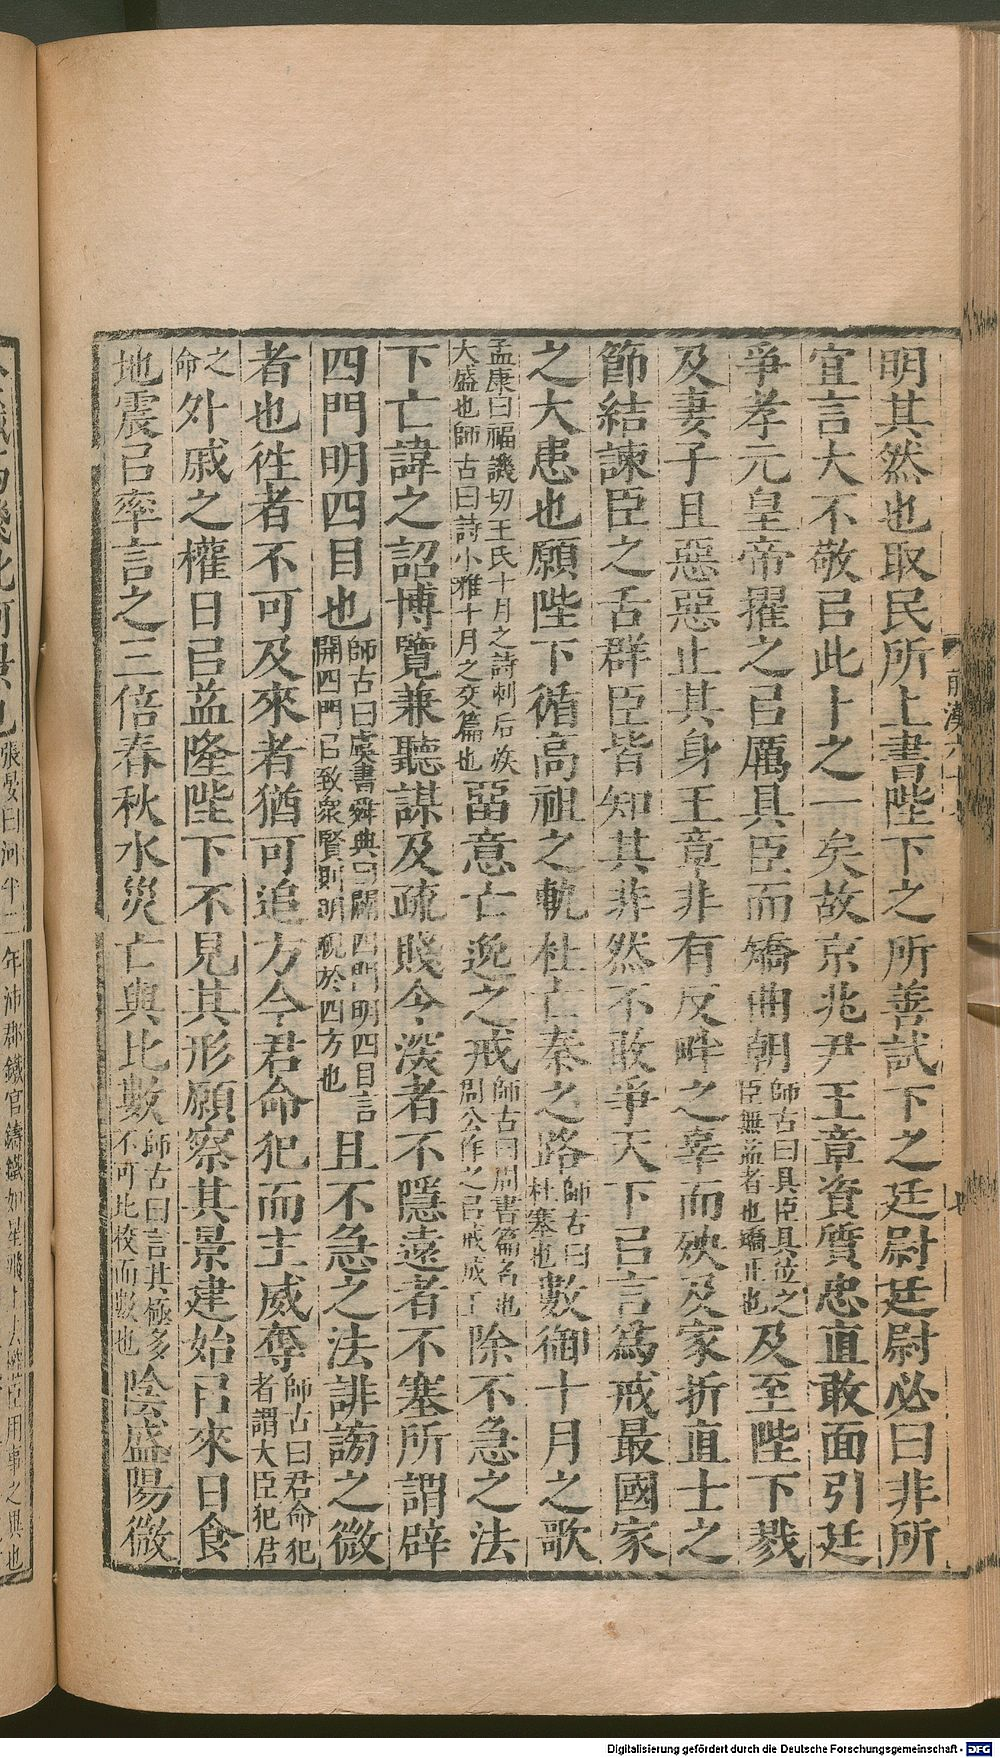 明其然也取民所上書陛下之所善試下之廷尉廷尉必曰非所
宜言大不敬㠯此卜之一矣故京兆尹王章資質忠直敢面引廷
爭孝元皇帝擢之㠯厲具臣而矯曲朝師古曰具臣具位之臣無益者也矯正也及至陛下戮
及妻子且惡惡止其身王章非有反畔之辜而殃及家折直士之
節結諫臣之舌群臣皆知其非然不敢爭天下㠯言爲戒最國家
之大患也願陛下循高祖之軌杜亡秦之路師古曰杜塞也數御十月之歌
孟康曰福譏切王氏十月之詩刺后族大盛也師古曰詩小雅十月之交篇也畱意亡逸之戒師古曰周書篇名也周公作之㠯戒成王除不急之法
下亡諱之詔博覽兼聽謀及疏賤令深者不隱遠者不塞所謂辟
四門明四目也師古曰虞書舜典曰闢四門明四目言開四門㠯致衆賢則明視於四方也且不急之法誹謗之微
者也往者不可及來者猶可追方今君命犯而主威奪師古曰君命犯者謂大臣犯君
之命外戚之權日㠯益隆陛下不見其形願察其景建始㠯來日食
地震㠯率言之三倍春秋水災亡與比數師古曰言其極多不可比校而數也陰盛陽微
張晏曰河平二年沛郡鐵官鑄鐵如星飛上去權臣用事之異也
前漢六十七
Digitalisierung gefördert durch die Deutsche Forschungsgemeinschaft - DFG